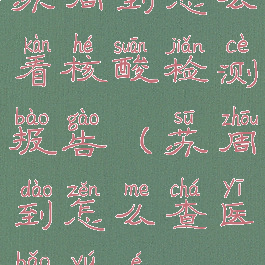 kàn hé suān jiǎn cè
看核酸检测
bào gào sū zhōu
报告(苏周
dào zěn me chá yī
到怎么查医
bǎo yú é